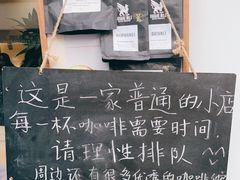 这是一家普通的小店
每一杯咖啡需要时间
请理性排队
周边还有很多优秀的咖啡馆